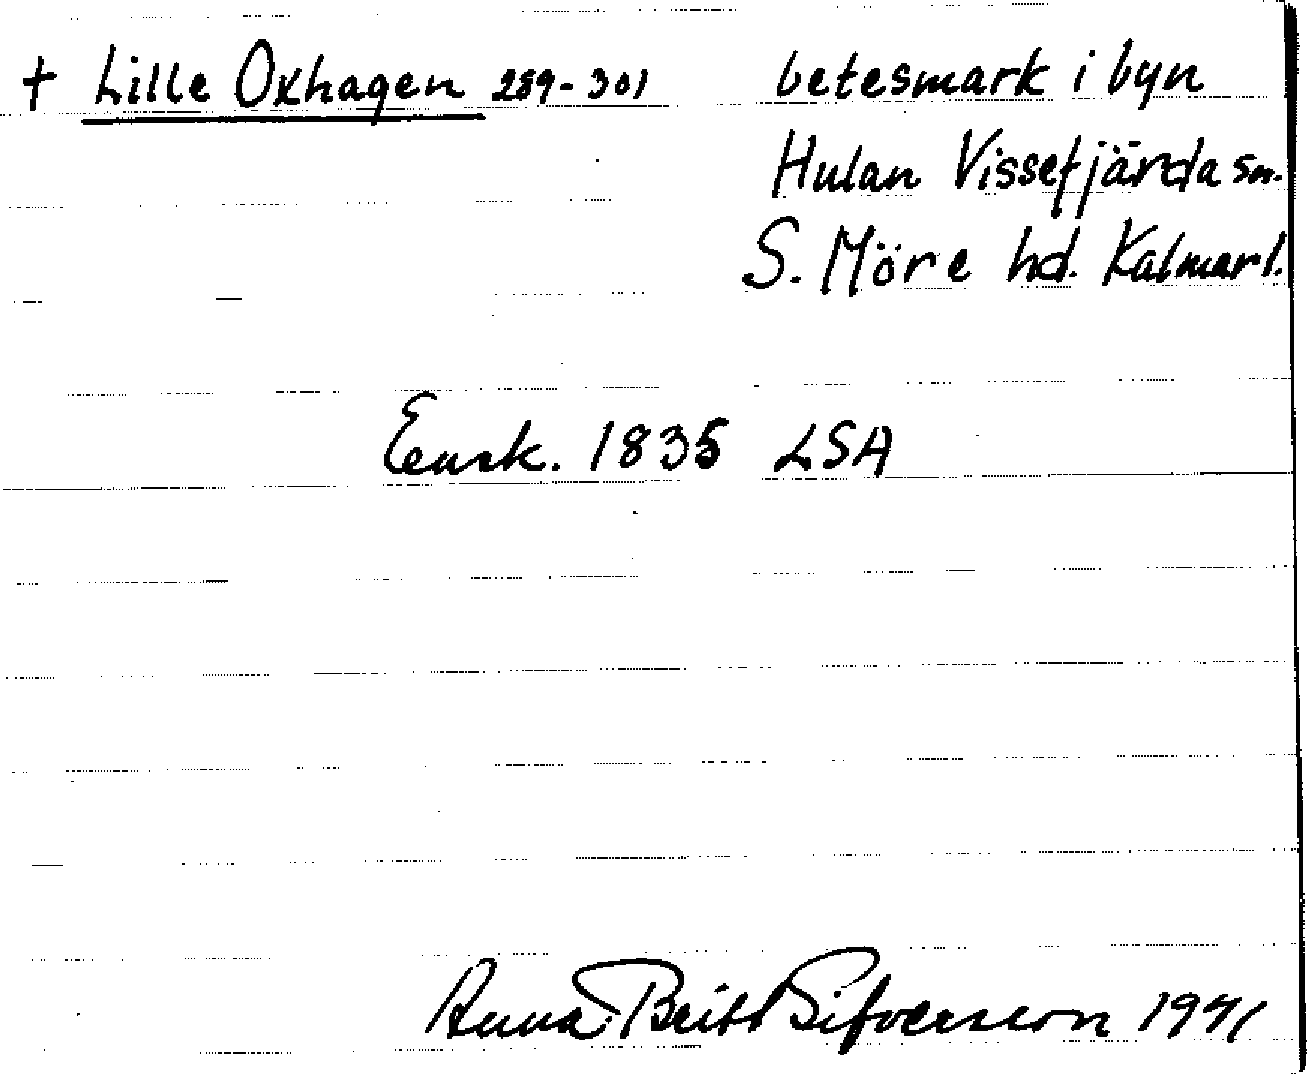 † Lille Oxhagen 289-301 betesmark i byn
Hulan Vissefjärda sn.
S. Möre hd. Kalmar l.
Ensk. 1835 LSA
Anna Britt Sifversson 1941